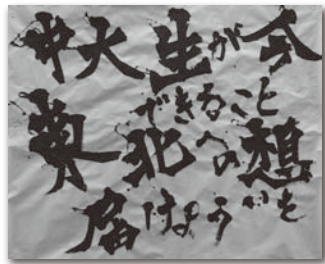 中大生が今
できること
東北への想いを
届けよう